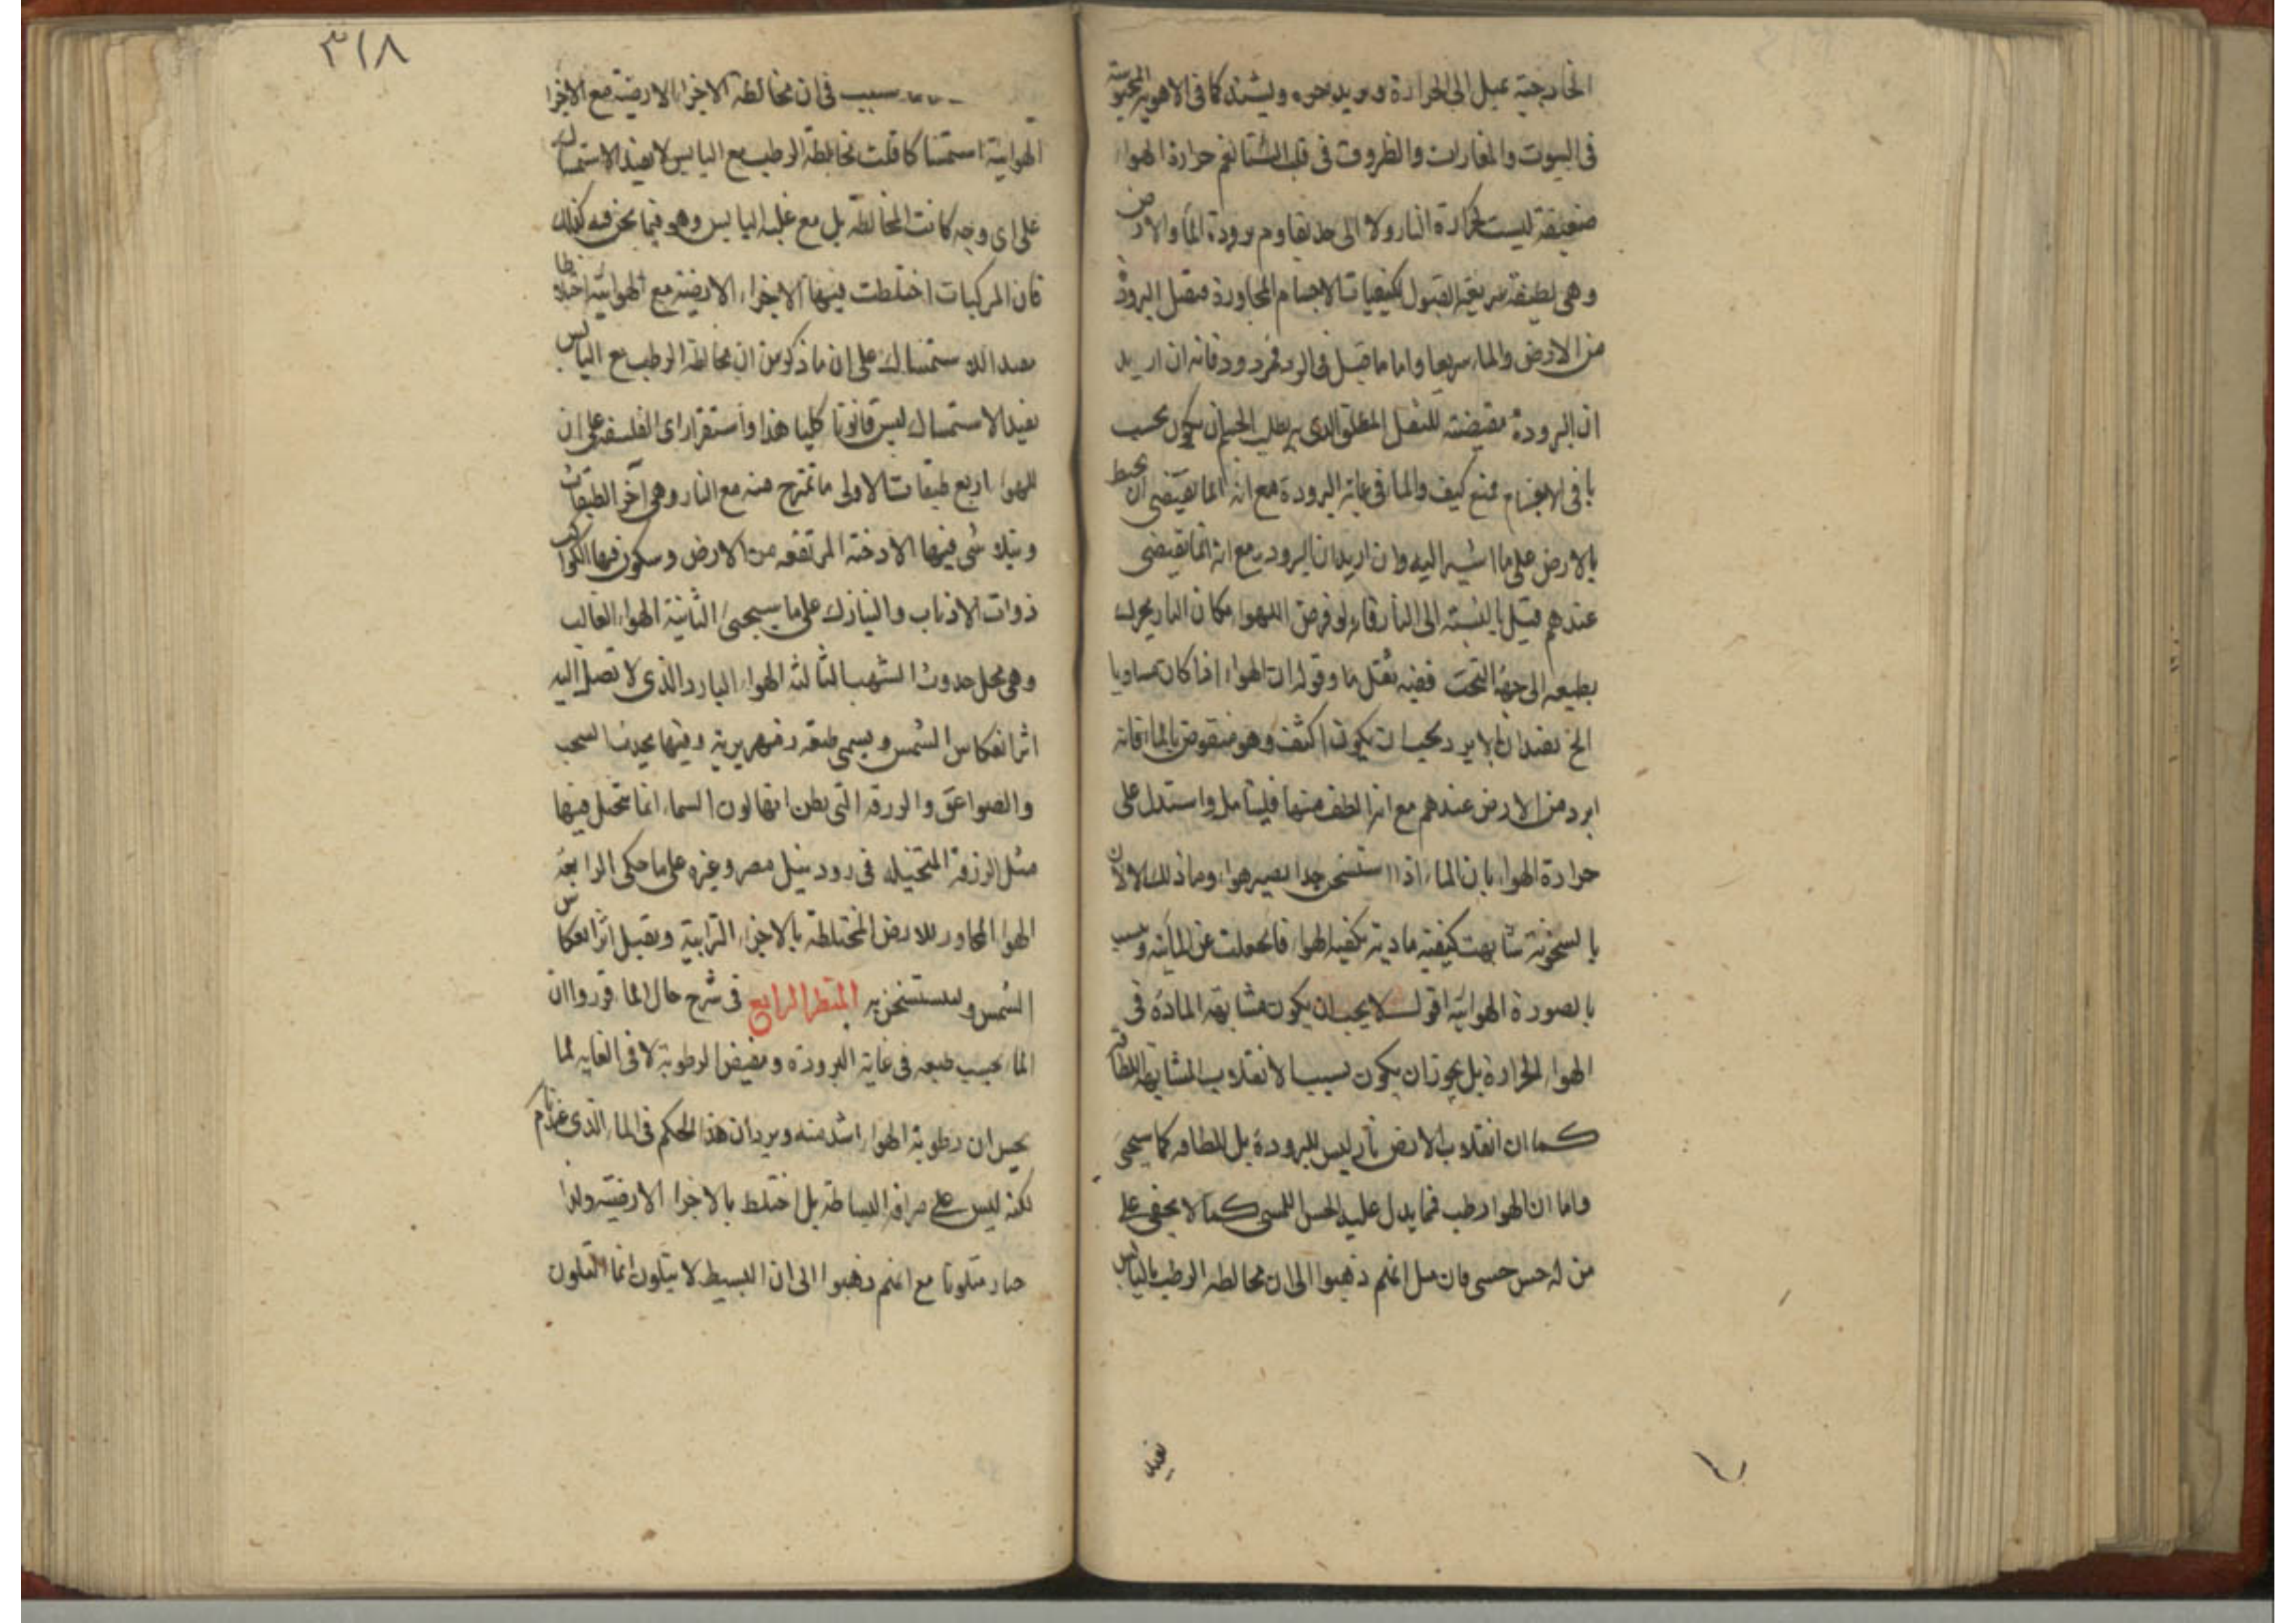 الخارجية يميل الى الحرارة ويشتد كما فى الاهوية المحبوسة
فى البيوت والمغارات والظروف فى قلب الشتا نعم حرارة الهواء
ضعيفة ليست كحرارة النار ولا الى حد يقاوم برودة الماء والارض
وهى لطيفة سريعة القبول لكيفيات الاجسام المجاورة فيقبل البرودة
من الارض والماء سريعا واما ما قيل فى الرد فمردود فانه ان اريد
ان البرودة مقتضية للثقل المطلق الذى به يطلب الجسم ان يكون بحسب
باقى الاجسام فمنع كيف والماء فى غاية البرودة مع انه انما يقتضى ان يحيط
بالارض على ما اشير اليه وان اريد ان البرودة مع انه انما يقتضى
عندهم قيل بالنسبة الى النار فانه لو فرض للهواء مكان النار يحرك
بطبعه الى جهة التحت ففيه ثقل ما وقوله ان الهواء اذا كان مساويا
الخ يفيد ان الابرد يجب ان يكون اكثف وهو منقوض بالماء فانه
ابرد من الارض عندهم مع انه الطف منها فليتامل واستدل على
حرارة الهواء بان الماء اذا استسخن جدا يصير هواء وما ذلك الا لان
بالسخونة شابهت كيفية مادية بكيفية الهواء فانخلعت عن المائية
بالصورة الهوائية اقول لا يجب ان يكون مشابهة المادة فى
الهواء الحرارة بل يجوز ان يكون سببا لانقلاب المشابهة اللطافة
كما ان انقلاب الارض نارا ليس للبرودة بل للطافة كما سيجئ
واما ان الهواء رطب فما يدل عليه الحس اللمسى كما لا يخفى على
من له حس حسى فان قيل انهم ذهبوا الى ان مخالطة الرطب باليابس
يفيد
٣١٨
سبب فى ان مخالطة الاجزاء الارضية مع الاجزا
الهوائية استمساكا قلت مخالطة الرطب مع اليابس لا يفيد الاستمساك
على اى وجه كانت المخالطة بل مع غلبة اليابس وهو فيما نحن فيه كذلك
فان المركبات اختلطت فيها الاجزاء الارضية مع الهوائية اختلاطا
يفيد الاستمساك على ان ما ذكر من ان مخالطة الرطب مع اليابس
يفيد الاستمساك ليس قانونا كليا هذا واستقر راى الفلسفة على ان
للهواء اربع طبقات الاولى ما تمتزج منه مع النار وهى آخر الطبقات
ويتلاشى فيها الادخنة المرتفعة من الارض وتتكون فيها الكواكب
ذوات الاذناب والنيازك على ما سيجئ الثانية الهواء الغالب
وهى محل حدوث الشهب الثالثة الهواء البارد الذى لا تصل اليه
اثر انعكاس الشمس ويسمى طبقة زمهريرية وفيها يحدث السحب
والصواعق والزرقة التى يظن انها لون السماء انما تتخيل فيها
مثل الزرقة المتخيلة فى رود نيل مصر وغيره على ما حكى الرابعة
الهواء المجاور للارض المختلطة بالاجزاء الترابية ويقبل اثر انعكاس
الشمس ويستسخن به المنظر الرابع فى شرح حال الماء قرروا ان
الماء بحسب طبعه فى غاية البرودة ومقتضى الرطوبة لا فى الغاية لما
يحس ان رطوبة الهواء اشد منه ويرد ان هذا الحكم فى الماء الذى عندنا
لكنه ليس على صرافة البساطة بل اختلط بالاجزاء الارضية ولذا
صار متلونا مع انهم ذهبوا الى ان البسيط لا يتلون انما التلون